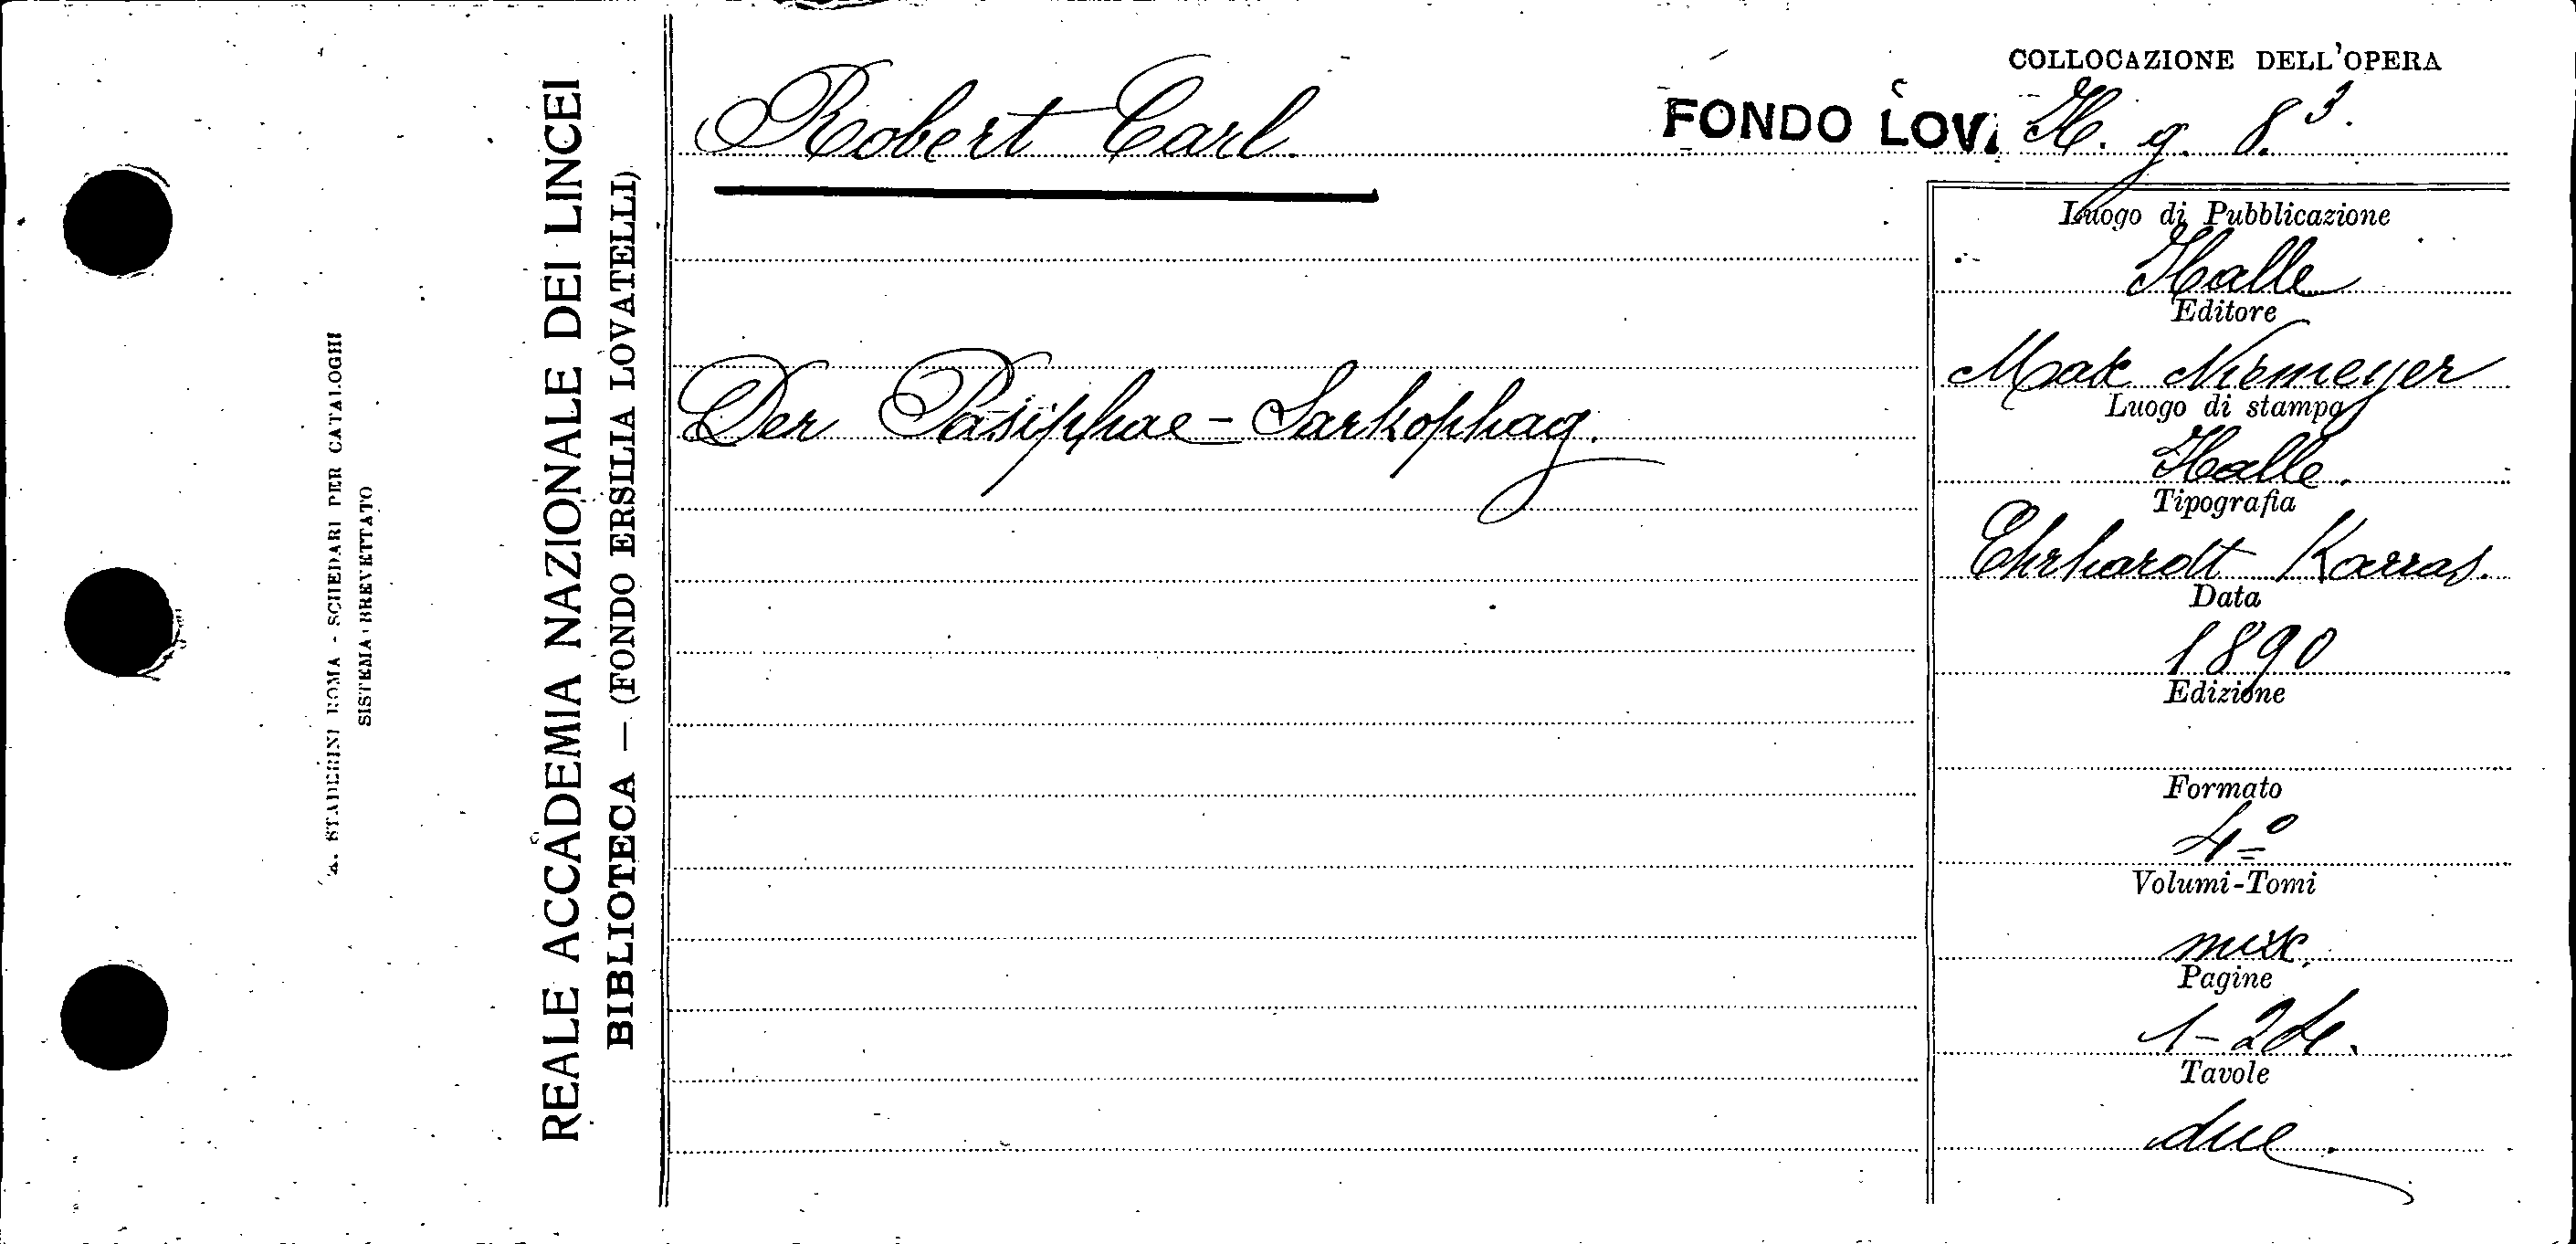 A. STADERINI ROMA - SCHEDARI PER CATALOGHI
SISTEMA BREVETTATO
REALE ACCADEMIA NAZIONALE DEI LINCEI
BIBLIOTECA — (FONDO ERSILIA LOVATELLI)
Robert Carl.
Der Pasiphae - Sarkophag.
COLLOCAZIONE DELL'OPERA
FONDO LOV. H. g. 8.3.
Luogo di Pubblicazione
Halle
Editore
Max Niemeyer
Luogo di stampa
Halle.
Tipografia
Ehrhardt Karras.
Data
1890
Edizione
Formato
4º
Volumi-Tomi
Pagine
1-24.
Tavole
due.